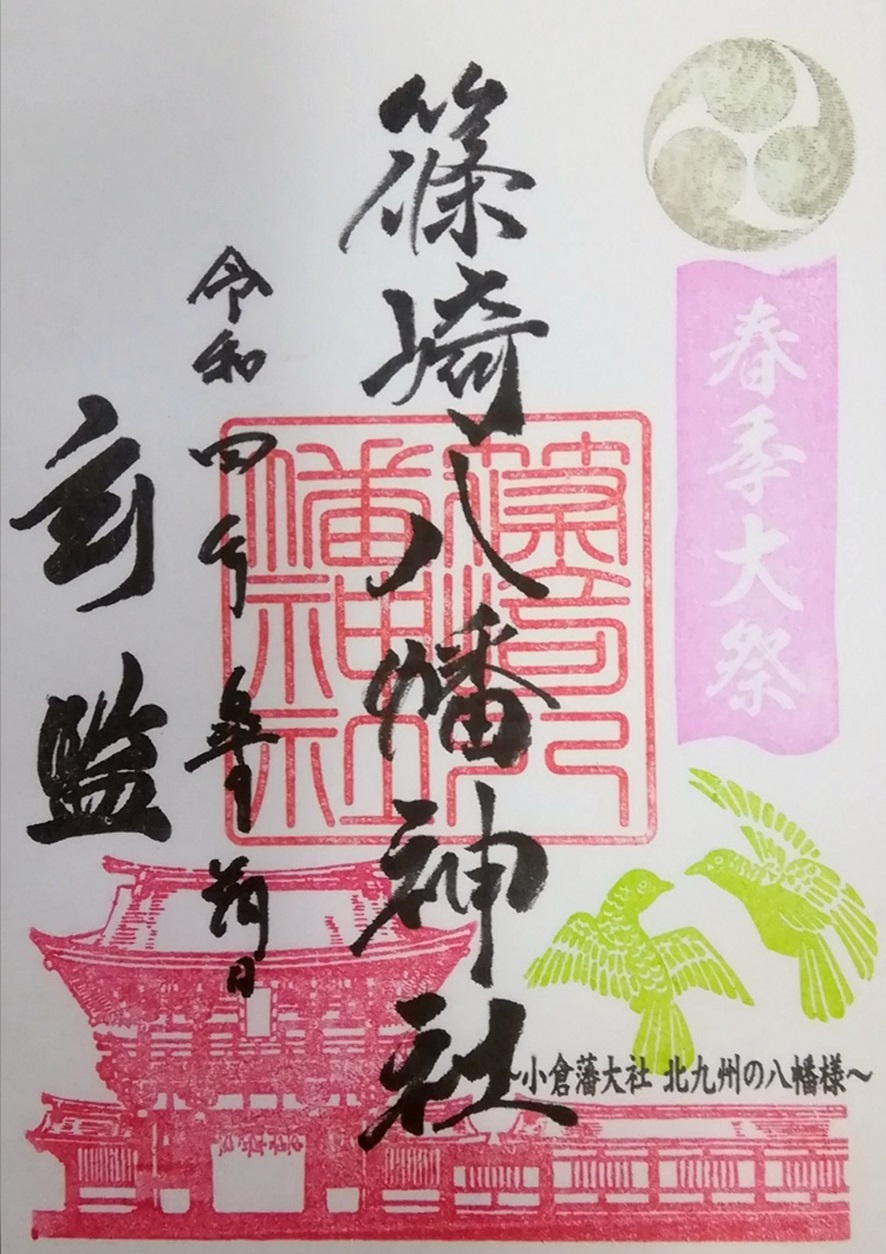 春季大祭
～小倉藩大社 北九州の八幡様～
篠崎八幡神社
篠崎八幡神社
令和四年 日